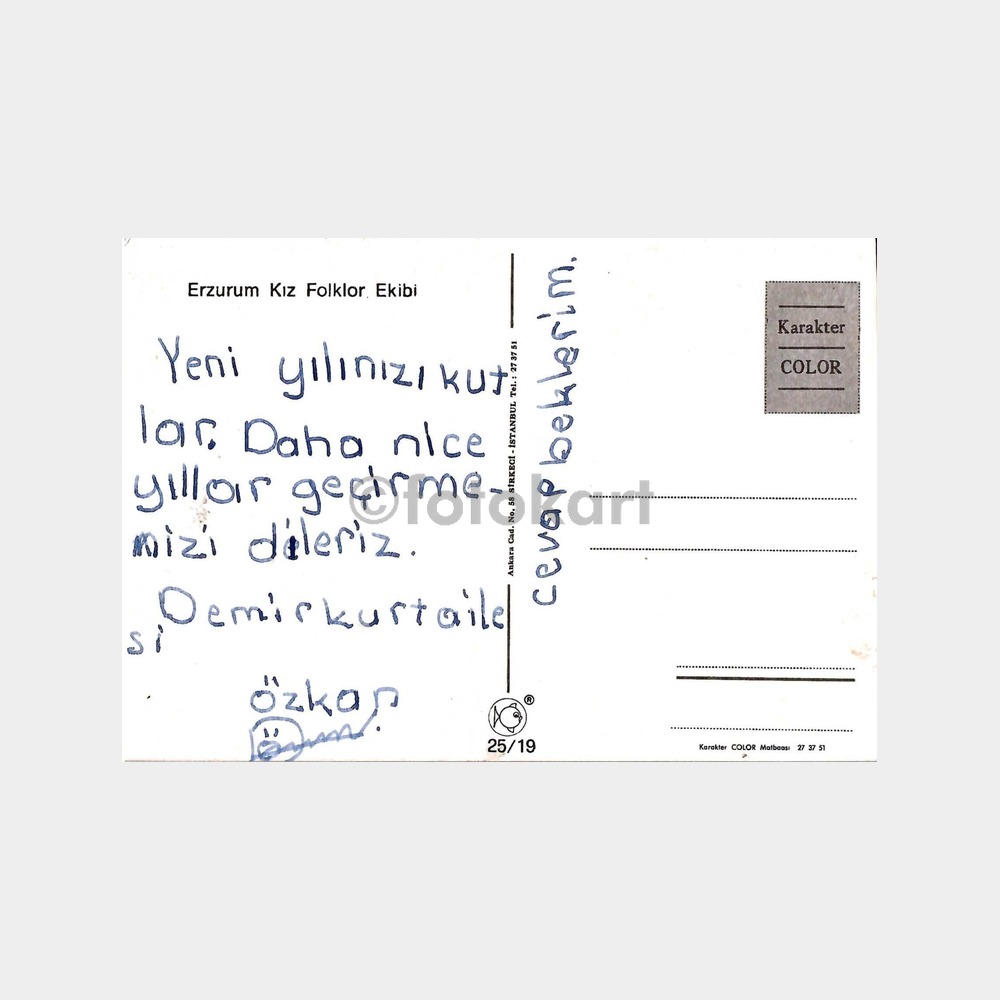 Erzurum Kız Folklor Ekibi
Yeni yılınızı kut
lar. Daha nice
yıllar geçirme-
nizi dileriz.
Demirkurt aile
si
özkan
25/19
Ankara Cad. No. 58 SİRKECİ - İSTANBUL Tel. : 27 37 51
cevap beklerim.
Karakter
COLOR
Karakter COLOR Matbaası 27 37 51
©fotokart